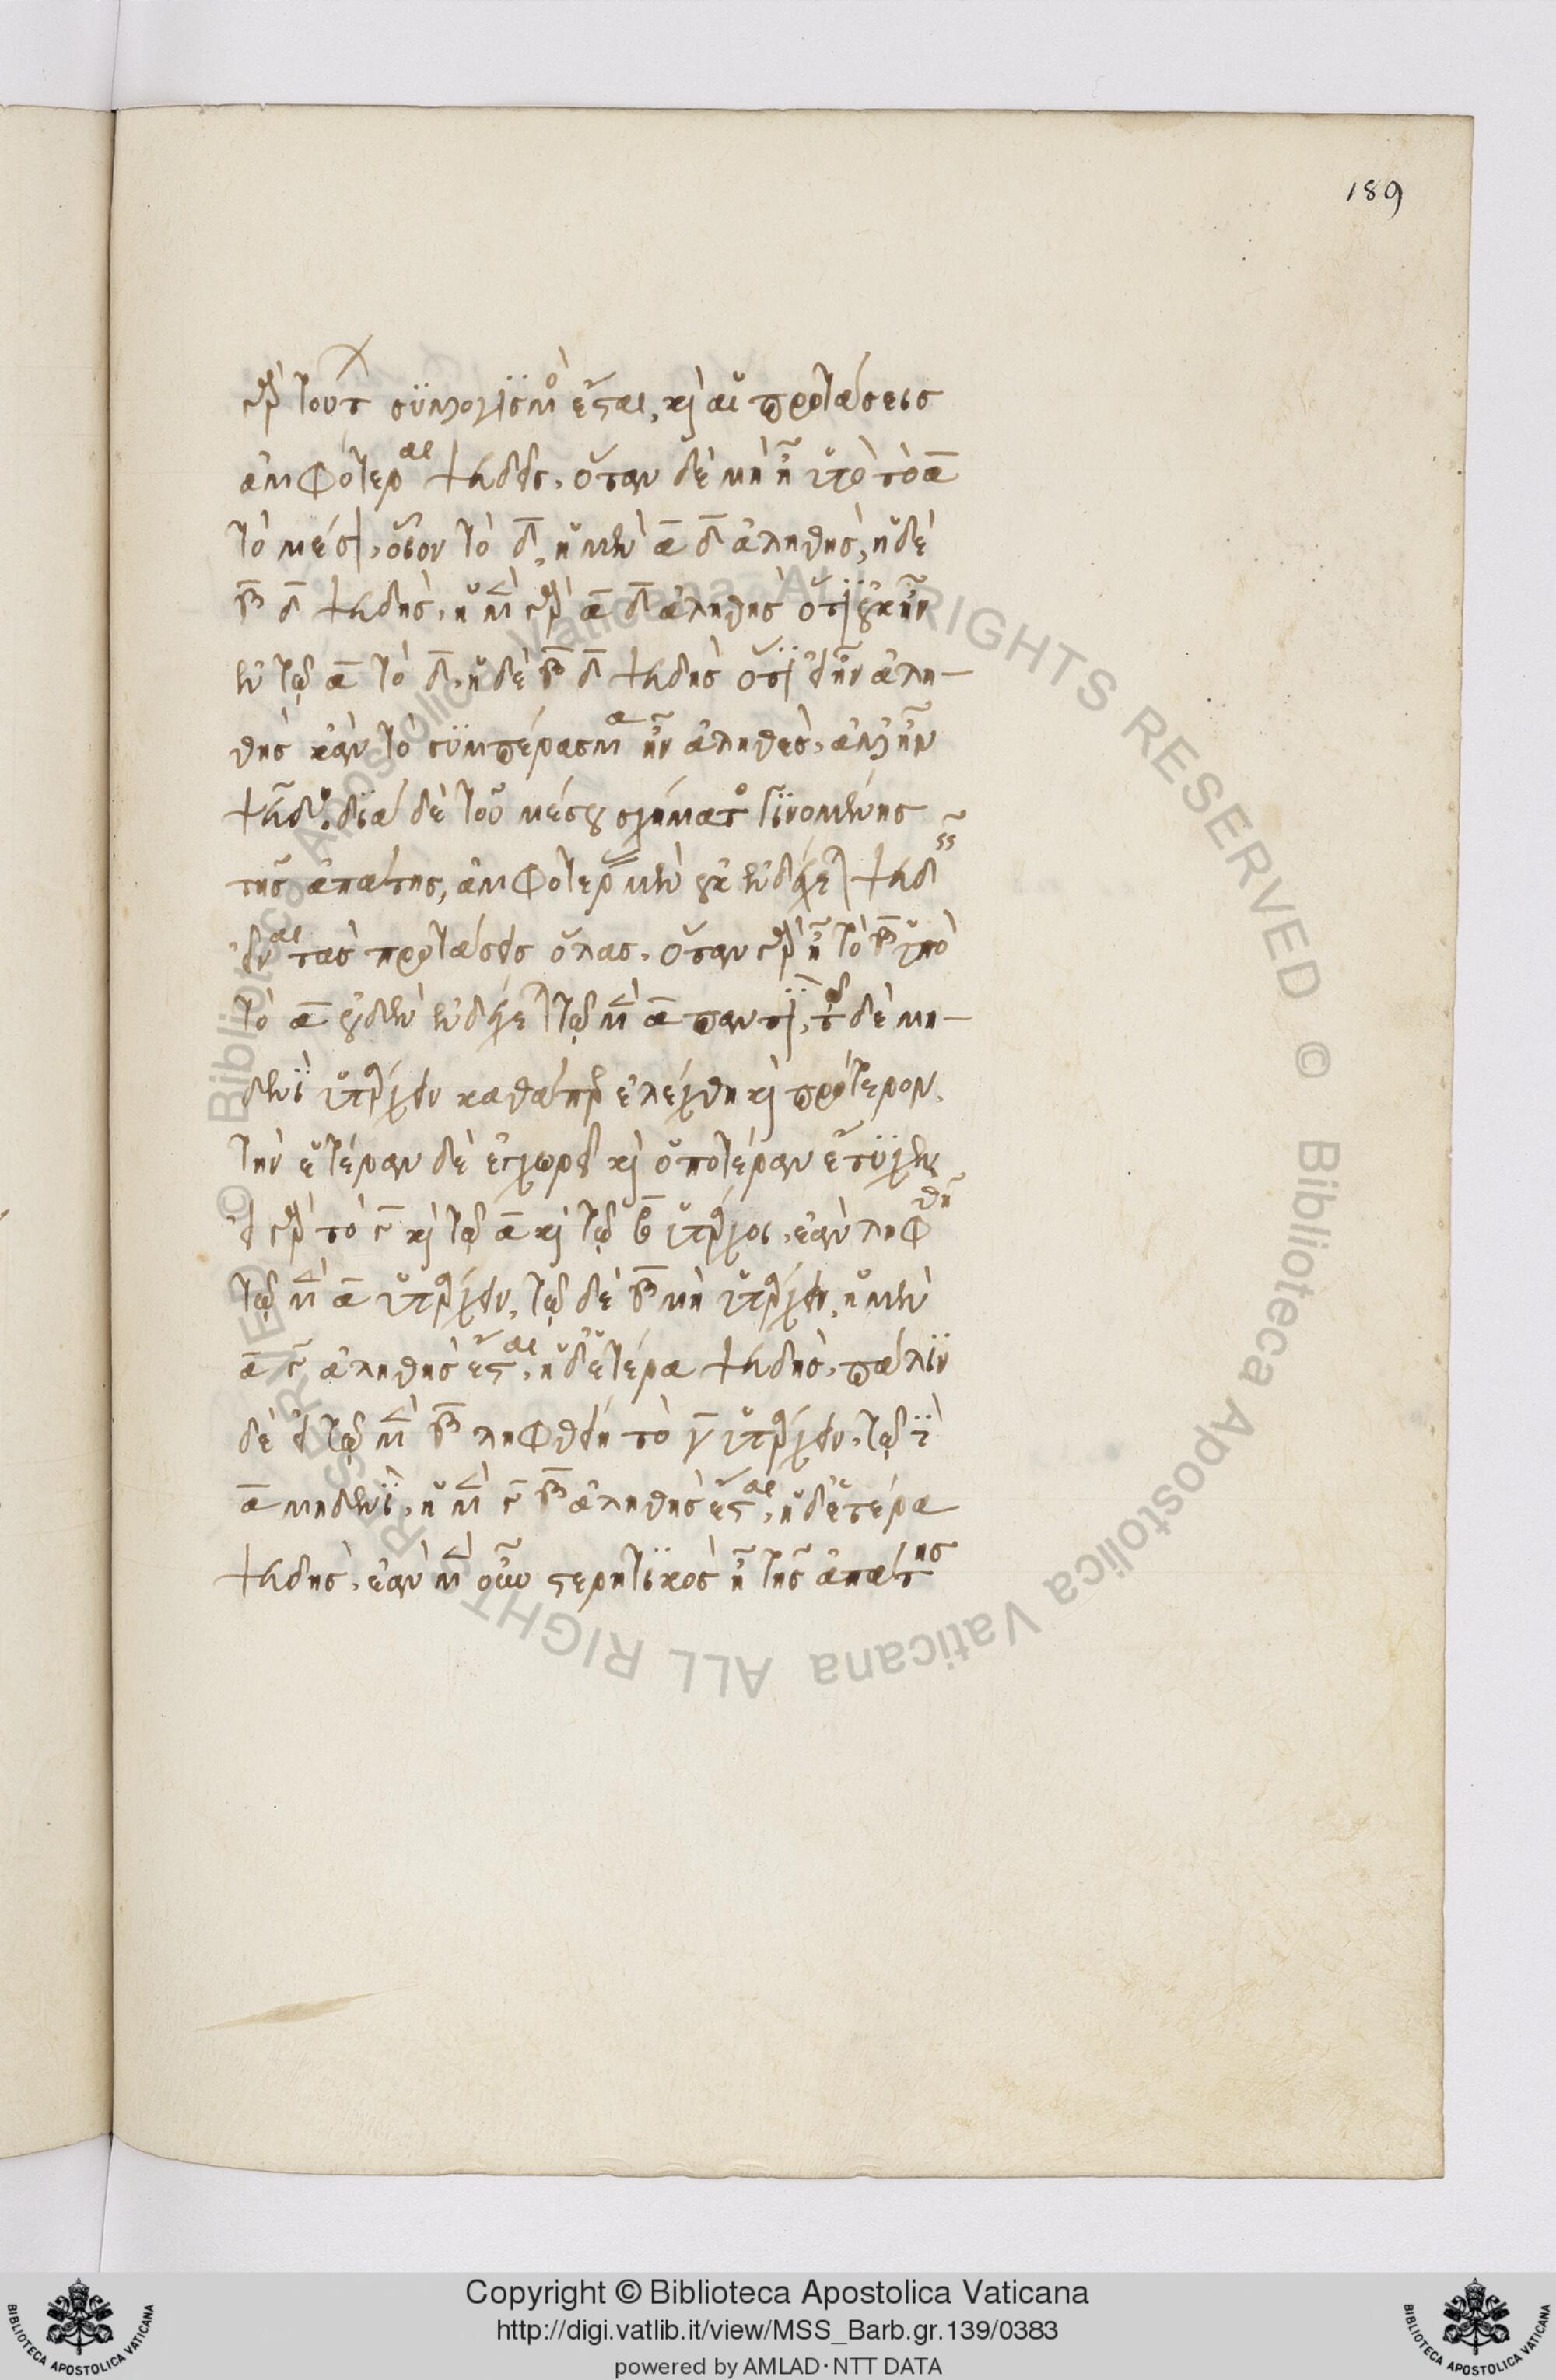 189
γὰρ τούτων συλλογισμὸς ἔσται, καὶ αἱ προτάσεις
ἀμφότεραι ψευδεῖς. ὅταν δὲ μὴ ᾖ ὑπὸ τὸ α
τὸ μέσον, οἷον τὸ δ, ἡ μὲν α δ ἀληθὴς, ἡ δὲ
β δ ψευδής. ἡ μὲν γὰρ α δ ἀληθὴς ὅτι οὐκ ἦν
ἐν τῷ α τὸ δ. ἡ δὲ β δ ψευδὴς ὅτι εἰ ἦν ἀλη-
θὴς κἂν τὸ συμπέρασμα ἦν ἀληθές. ἀλλ' ἦν
ψεῦδος. διὰ δὲ τοῦ μέσου σχήματος γινομένης
τῆς ἀπάτης, ἀμφοτέρας μὲν οὐκ ἐνδέχεται ψευδεῖς
εἶναι τὰς προτάσεις ὅλας. ὅταν γὰρ ᾖ τὸ β ὑπὸ
τὸ α οὐδὲν ἐνδέχεται τῷ μὲν α παντὶ, τῷ δὲ μη-
δενὶ ὑπάρχειν καθάπερ ἐλέχθη καὶ πρότερον.
τὴν ἑτέραν δὲ ἐγχωρεῖ καὶ ὁποτέραν ἔτυχεν
εἰ γὰρ τὸ γ καὶ τῷ α καὶ τῷ β ὑπάρχοι. ἐὰν ληφθῇ
τῷ μὲν α ὑπάρχειν, τῷ δὲ β μὴ ὑπάρχειν, ἡ μὲν
α γ ἀληθὴς ἔσται, ἡ δ' ἑτέρα ψευδής. πάλιν
δὲ εἰ τῷ μὲν β ληφθείη τὸ γ ὑπάρχειν. τῷ δὲ
α μηδενὶ. ἡ μὲν γ β ἀληθὴς ἔσται, ἡ δ' ἑτέρα
ψευδής. ἐὰν μὲν οὖν στερητικὸς ᾖ τῆς ἀπάτης
Copyright © Biblioteca Apostolica Vaticana
http://digi.vatlib.it/view/MSS_Barb.gr.139/0383
powered by AMLAD · NTT DATA
© Biblioteca Apostolica Vaticana ALL RIGHTS RESERVED
© Biblioteca Apostolica Vaticana ALL RIGHTS RESERVED
BIBLIOTECA APOSTOLICA VATICANA
BIBLIOTECA APOSTOLICA VATICANA